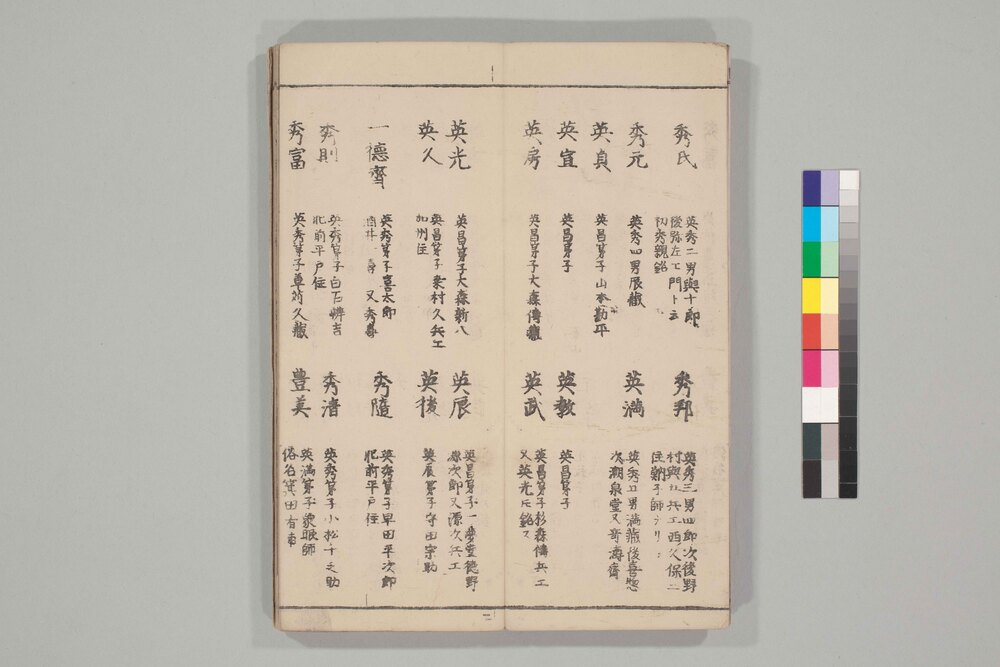 秀氏
英秀二男與十郎
後弥左エ門ト云
初秀親銘
秀元
英秀四男辰蔵
英貞
英昌弟子山本勘平
英宜
英昌弟子
英房
英昌弟子大森傳蔵
秀邦
英秀三男四郎次後野
村與九兵エ西久保ニ
住
英満
英秀 男満蔵後喜惣
次潮泉堂又奇涛齋
英教
英昌弟子
英武
英昌弟子杉森傳兵エ
又英光ト銘ス
英光
英昌弟子大森新八
英久
英昌弟子 村久兵エ
加州住
一德齋
英秀弟子喜太郎
酒井 壽 又秀壽
秀則
英秀弟子白石 吉
肥前平戸住
秀富
英秀弟子草苅久蔵
英辰
英昌弟子一夢堂徳野
源次郎又源次兵エ
英後
英辰弟子守田宗助
秀随
英秀弟子早田平次郎
肥前平戸住
秀清
英秀弟子小松十之助
豊美
英満弟子象眼師
俗名箕田有事